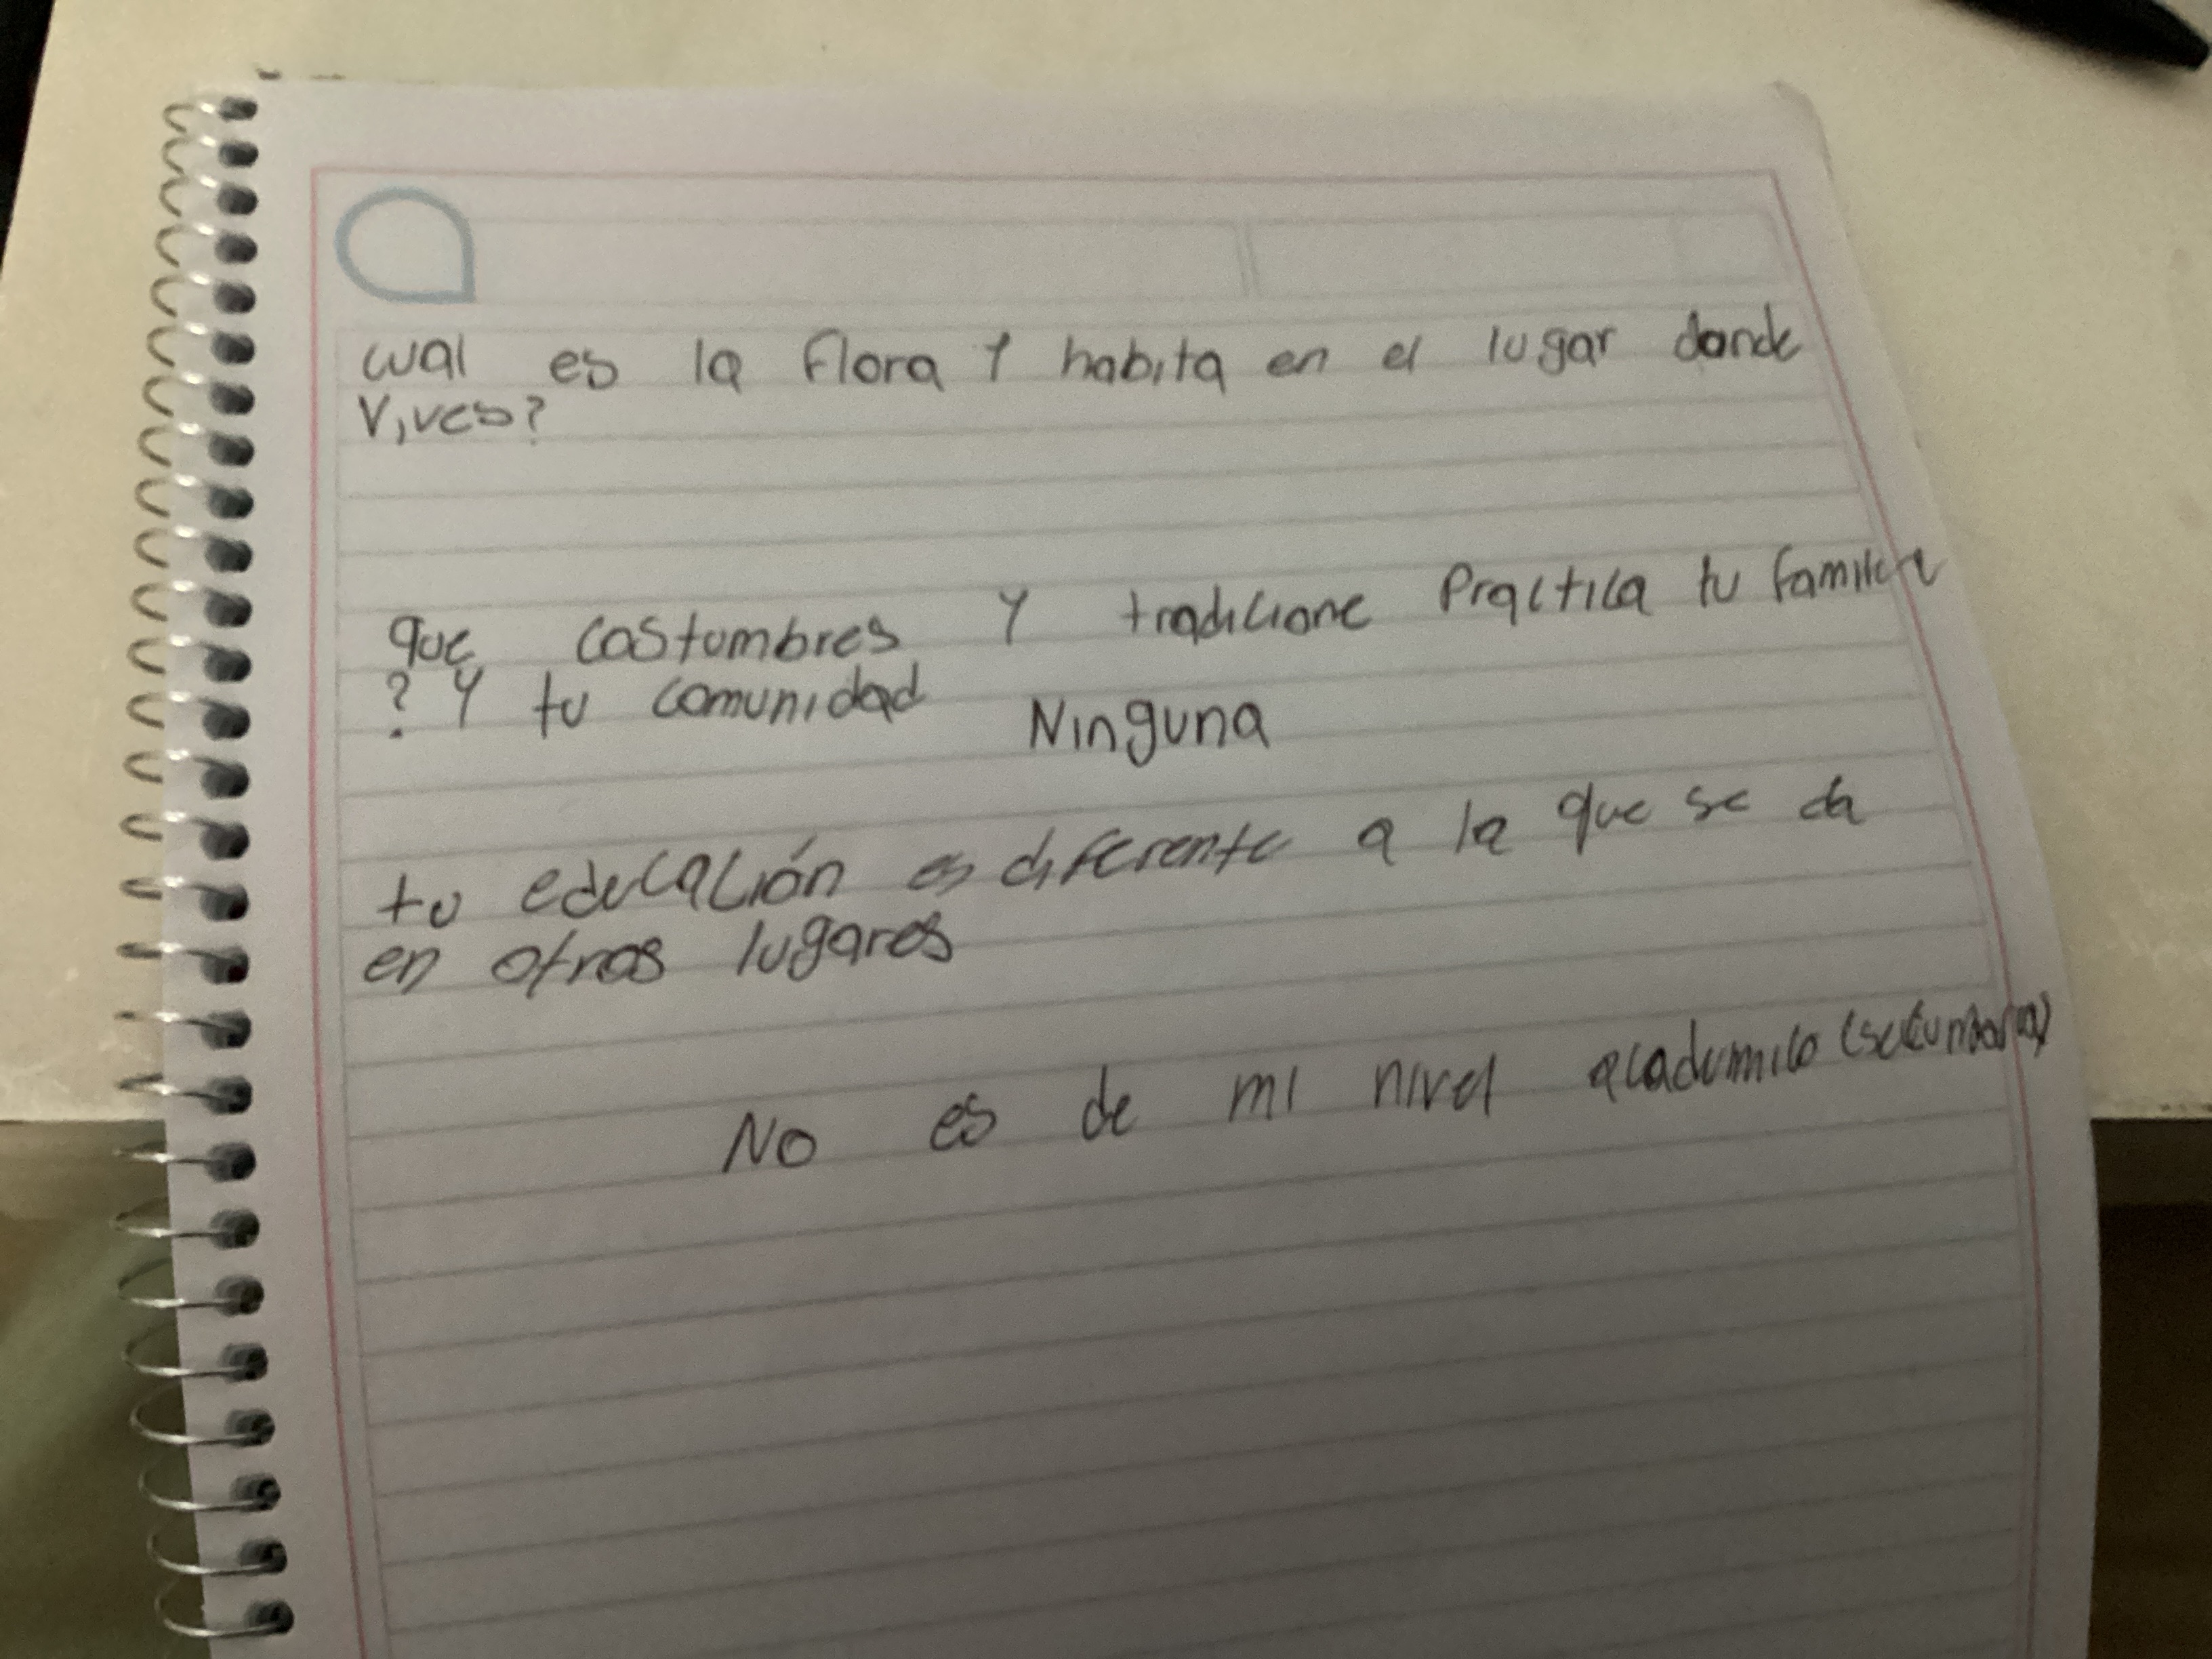 cual es la flora y habita en el lugar donde
Vives?
que costumbres y tradicione Practica tu familia
? y tu comunidad
Ninguna
tu educación es diferente a la que se da
en otros lugares
No es de mi nivel academico (secundaria)